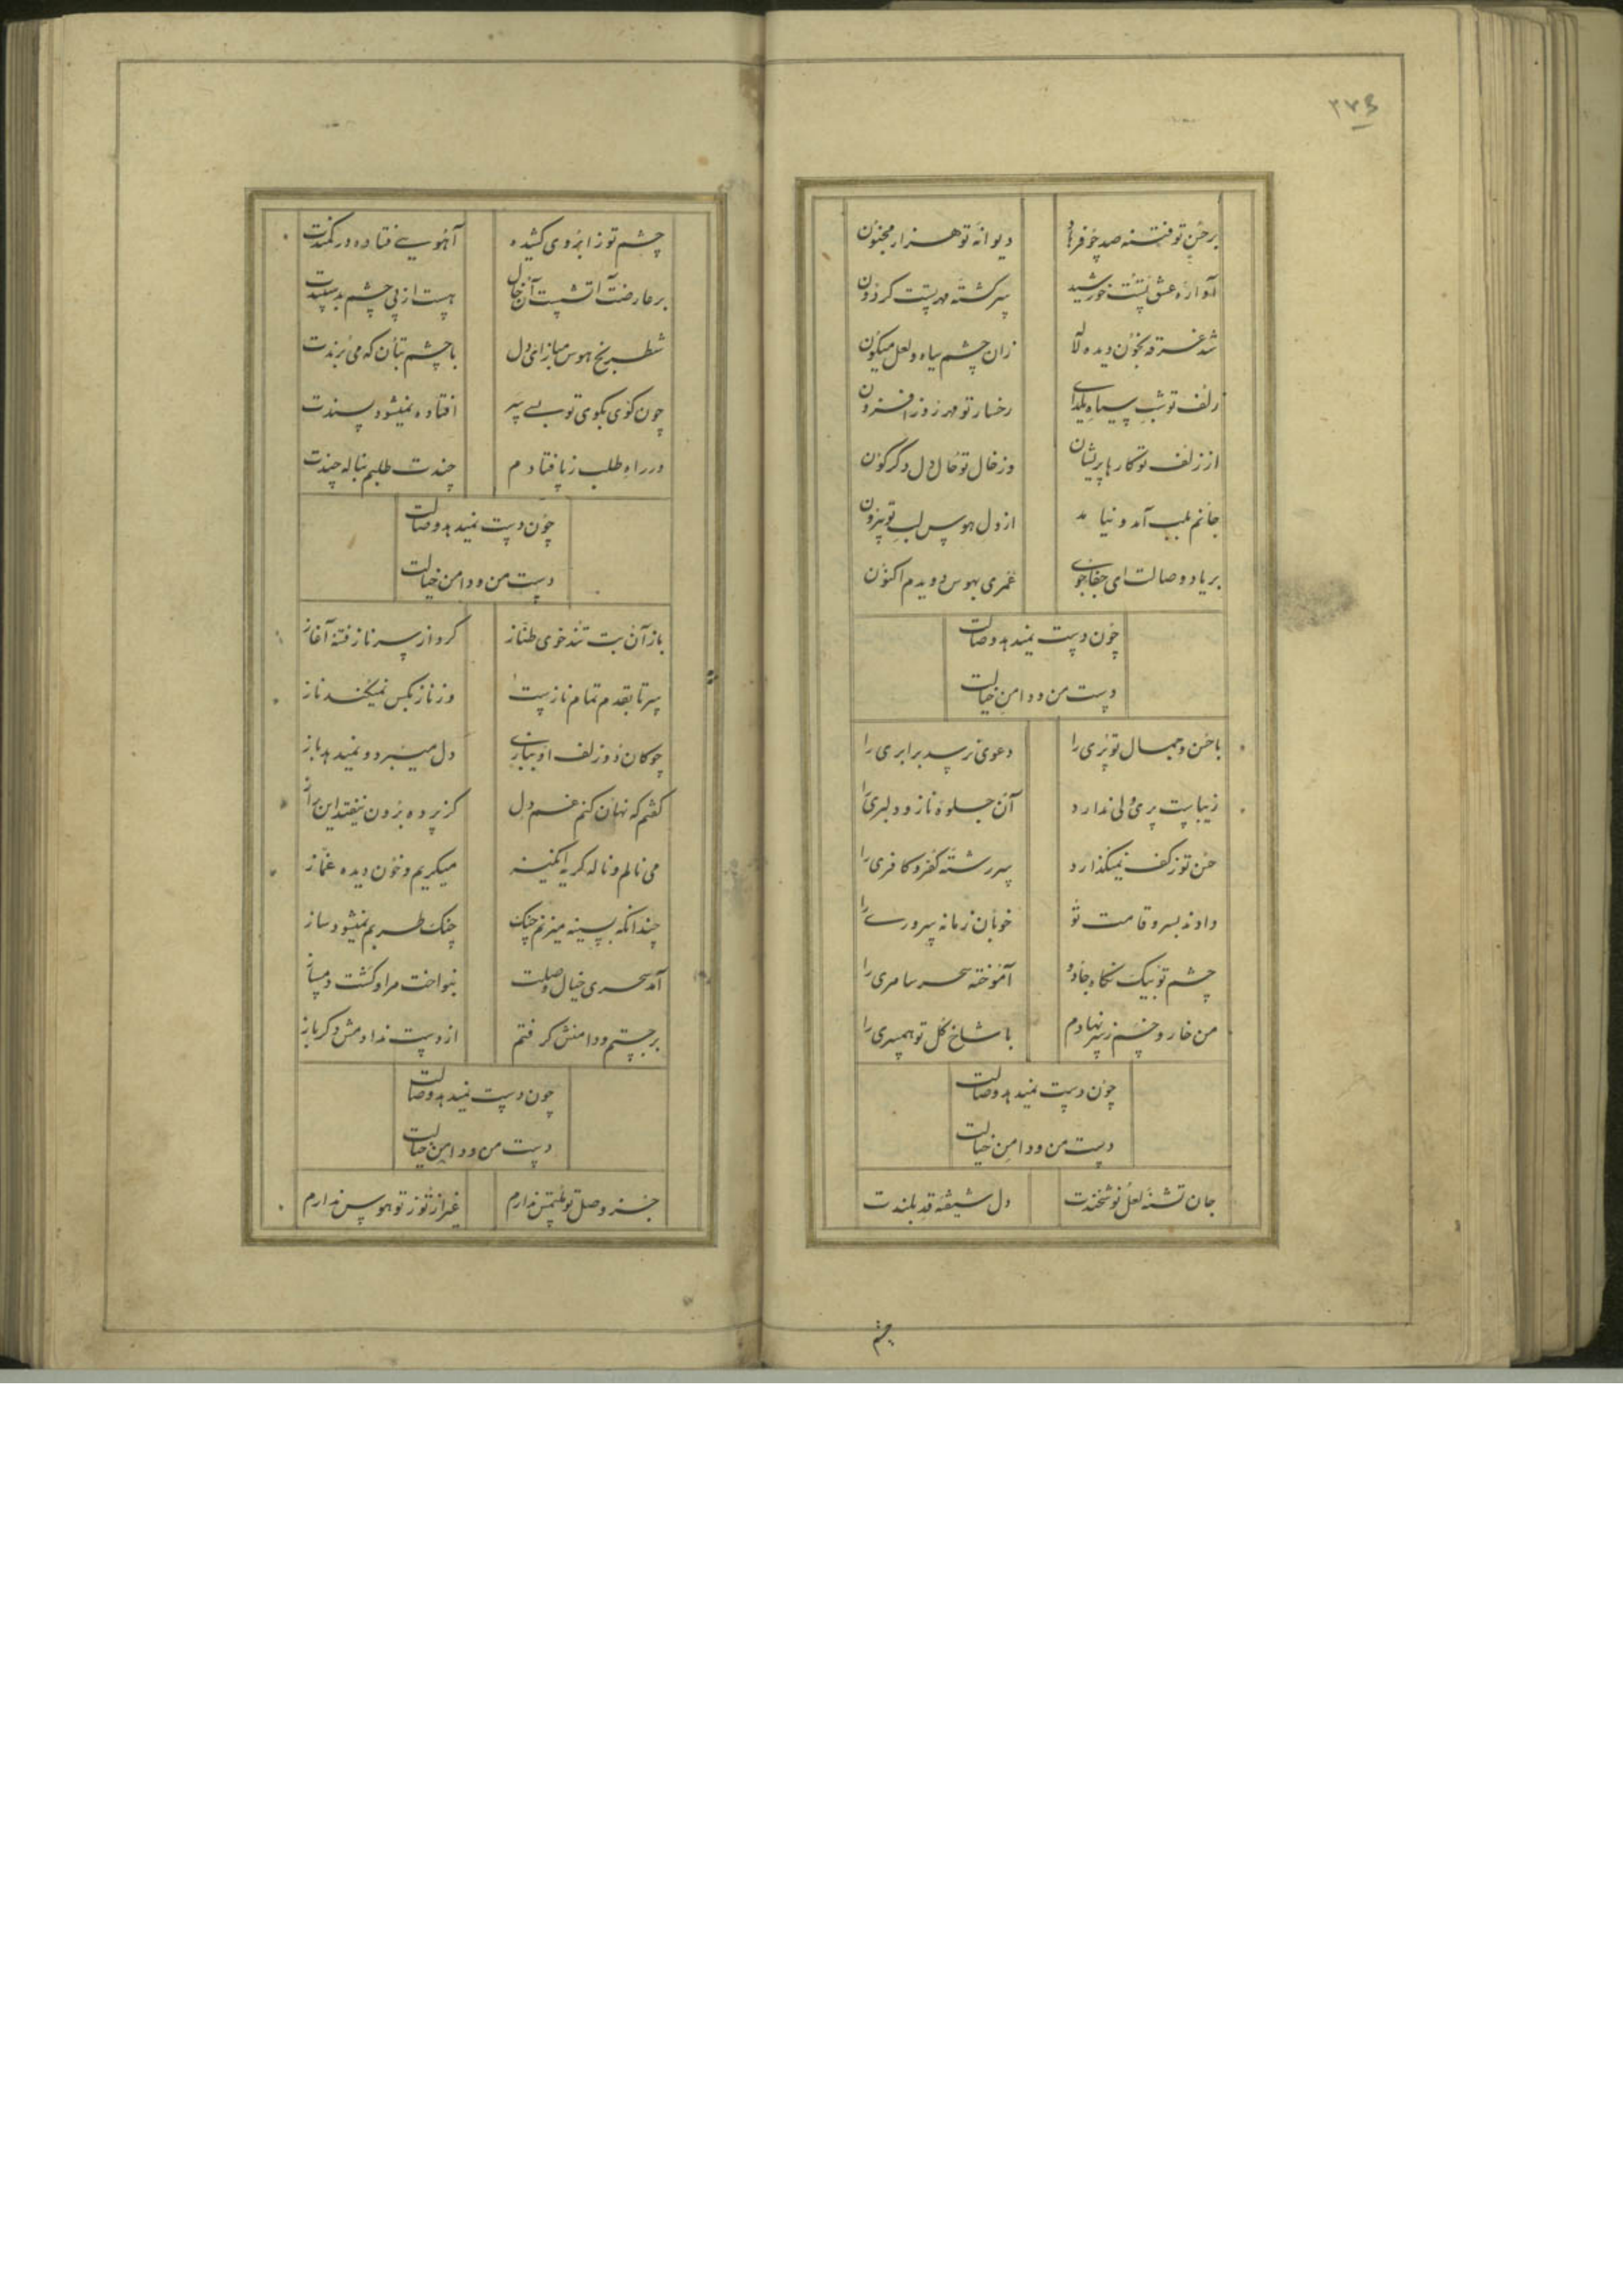 ۲۷۶
بر حسن تو فتنه صد چو فرهاد دیوانه تو هزار مجنون
آواره عشق تست خورشید سرگشته مهر تست گردون
شد غرقه بخون دیده لاله زان چشم سیاه و لعل میگون
زلف تو شب سیاه یلدای رخسار تو مهر روز افزون
از زلف تو کارها پریشان وز خال تو حال دل دگرگون
جانم بلب آمد و نیامد از دل هوس لب تو بیرون
بر یاد وصالت ای جفاجوی عمری بهوس دویدم اکنون
چون دست نمیدهد وصالت
دست من و دامن خیالت
با حسن و جمال تو پری را دعوی نرسد برابری را
زیباست پری ولی ندارد آن جلوه ناز و دلبری را
حسن تو ز کف نمیگذارد سررشته کفر و کافری را
دادند بسرو قامت تو خوبان زمانه سروری را
چشم تو بیک نگاه جادو آموخته سحر سامری را
من خار و خسم ز سر نهادم با شاخ گل تو همسری را
چون دست نمیدهد وصالت
دست من و دامن خیالت
جان تشنه لعل نوشخندت دل شیفته قد بلندت
چشم
چشم تو ز ابروی کشیده آهویی فتاده در کمندت
بر عارضت آتشیست آن خال هست از پی چشم بد سپندت
شطرنج هوس مباز ای دل با چشم بتان که می برندت
چون گوی بکوی تو بسی سر افتاده نمیشود پسندت
در راه طلب ز پا فتادم چندت طلبم بناله چندت
چون دست نمیدهد وصالت
دست من و دامن خیالت
باز آن بت تند خوی طناز کرد از سر ناز فتنه آغاز
سر تا بقدم تمام نازست وز ناز بکس نمیکند ناز
چوگان دو زلف او ببازی دل میبرد و نمیدهد باز
گفتم که نهان کنم غم دل کز پرده برون نیفتد این راز
می نالم و ناله گریه انگیز میگریم و خون دیده غماز
چندانکه بسینه میزنم چنگ چنگ طربم نمیشود ساز
آمد سحری خیال وصلت بنواخت مرا و گشت دمساز
برجستم و دامنش گرفتم از دست ندادمش دگر باز
چون دست نمیدهد وصالت
دست من و دامن خیالت
جز وصل تو ملتمس ندارم غیر از تو ز تو هوس ندارم